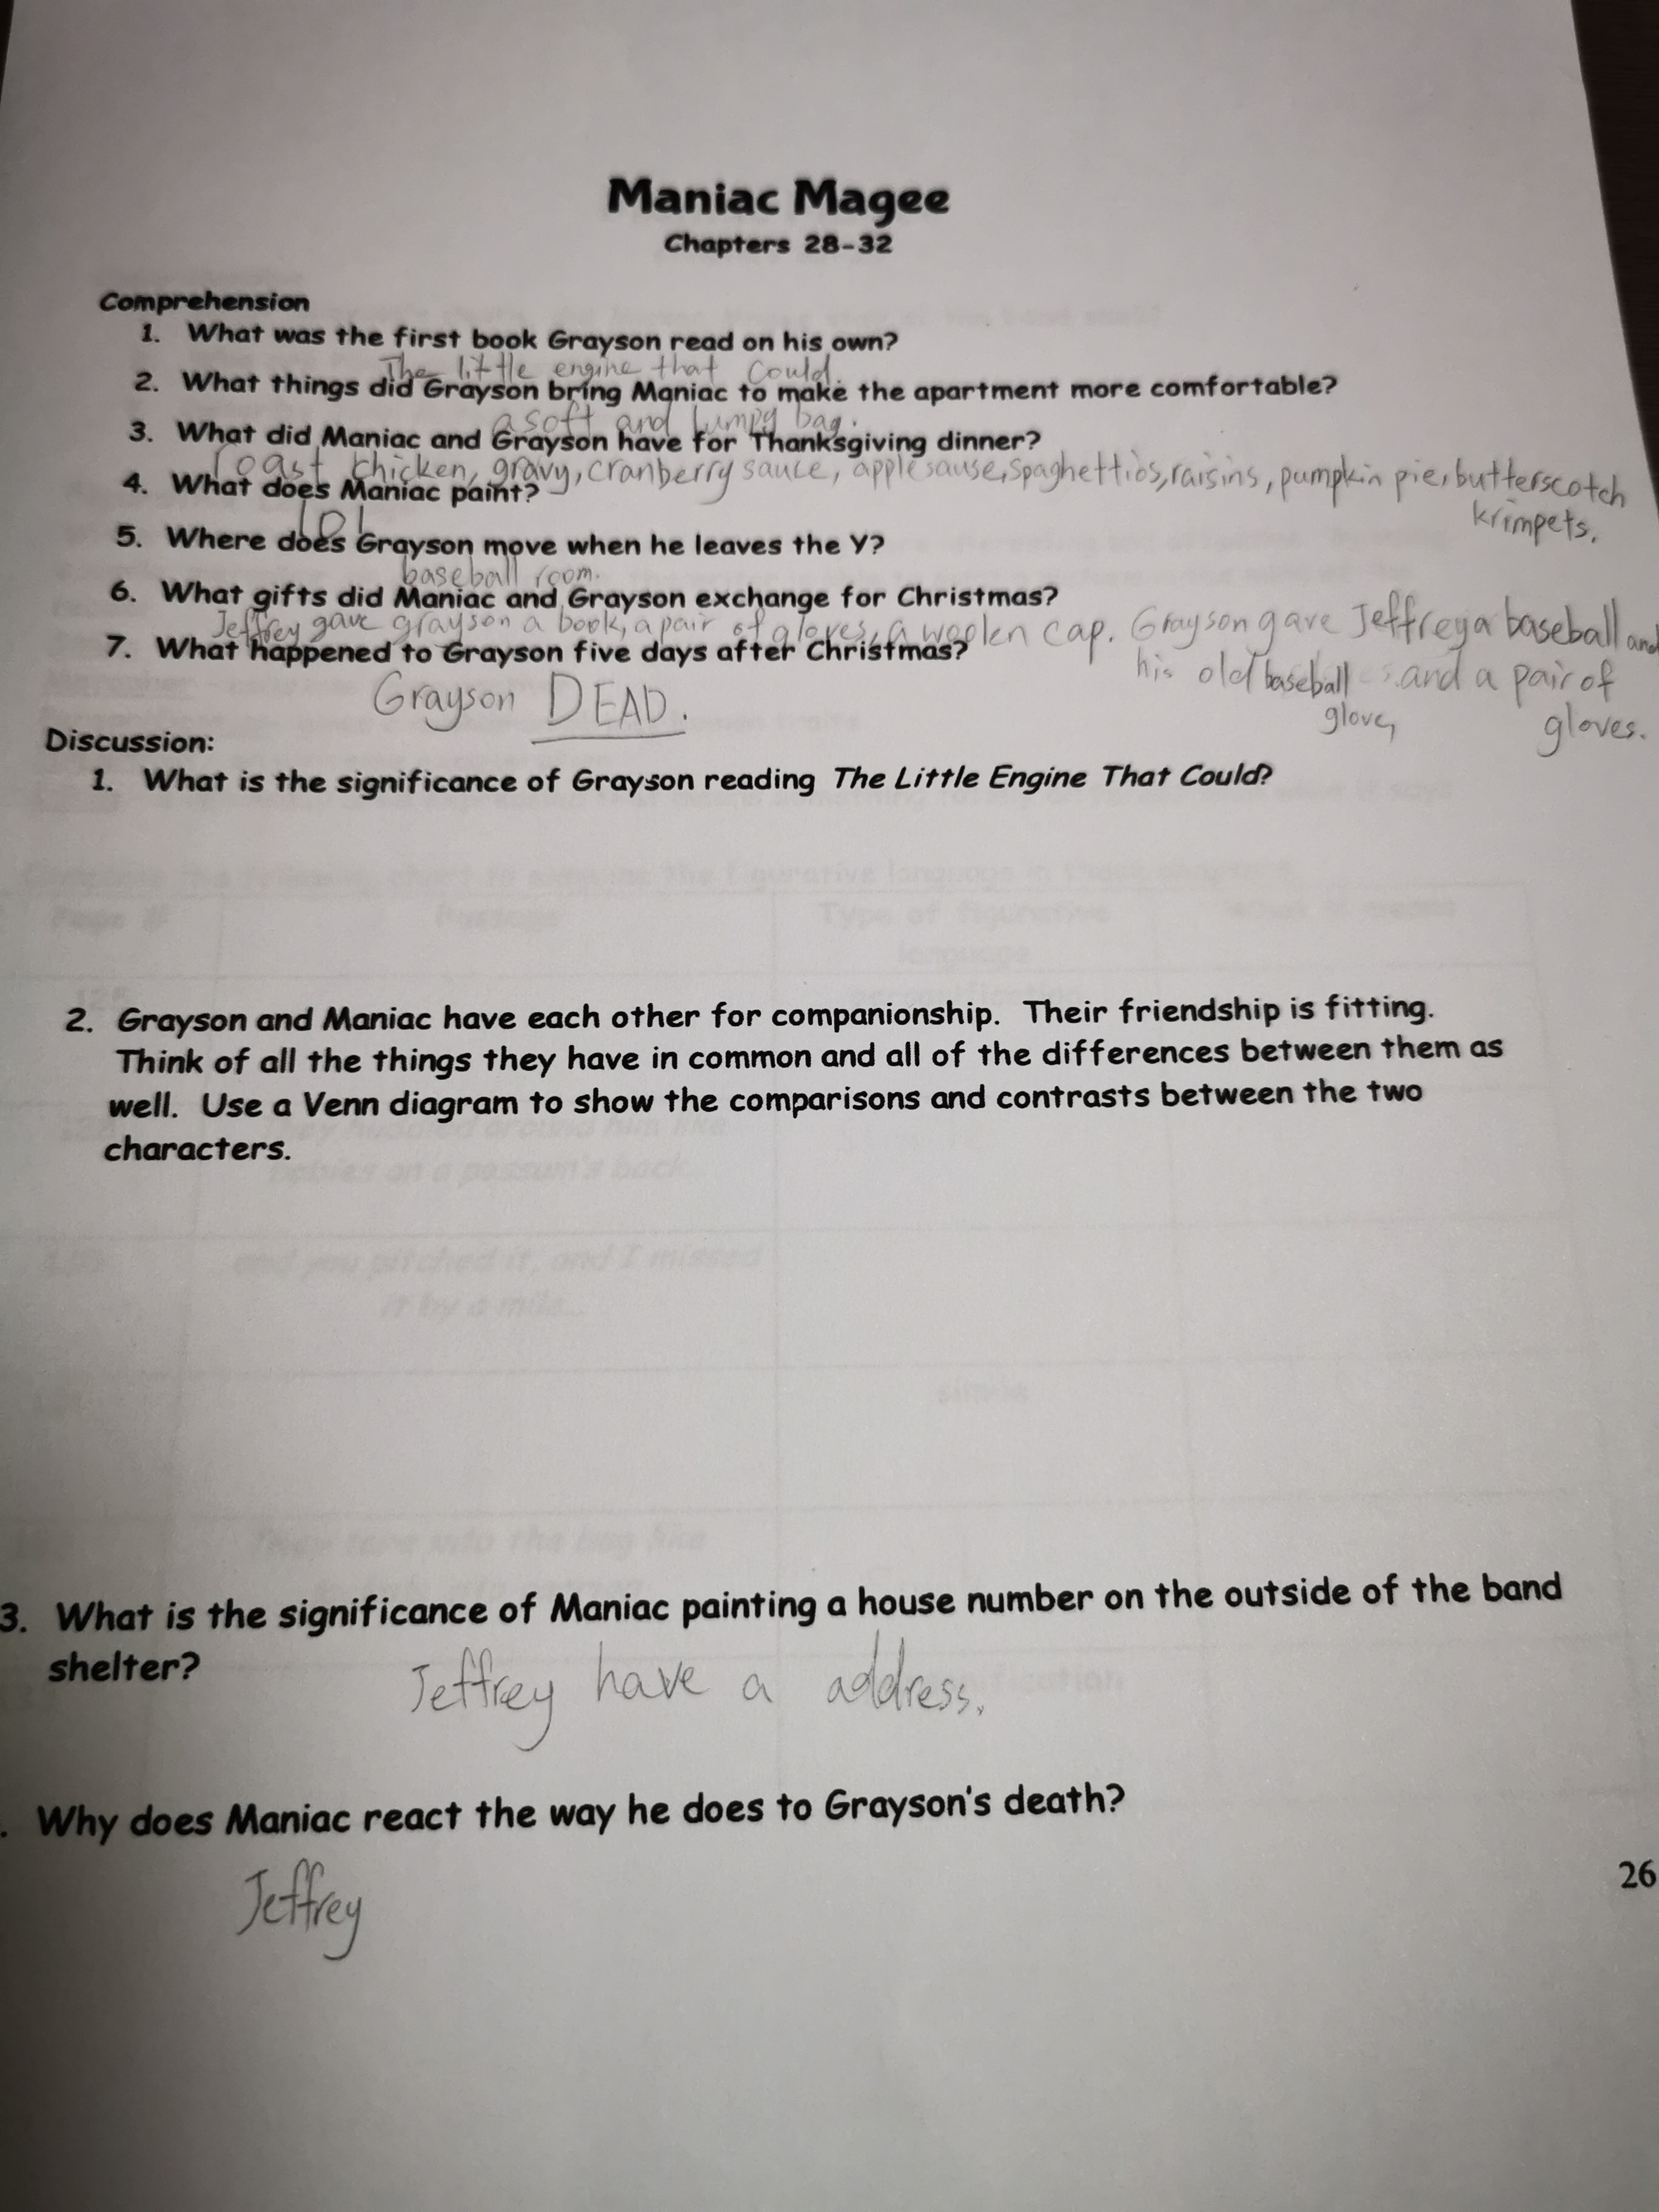 Maniac Magee
Chapters 28-32
Comprehension
1. What was the first book Grayson read on his own?
The little engine that Could.
2. What things did Grayson bring Maniac to make the apartment more comfortable?
a soft and lumpy bag.
3. What did Maniac and Grayson have for Thanksgiving dinner?
roast chicken, gravy, cranberry sauce, applesause, spaghettios, raisins, pumpkin pie, butterscotch
krimpets.
4. What does Maniac paint?
101
5. Where does Grayson move when he leaves the Y?
baseball room.
6. What gifts did Maniac and Grayson exchange for Christmas?
Jeffrey gave grayson a book, a pair of gloves, a woolen cap. Grayson gave Jeffrey a baseball and
his old baseball and a pair of
glove, gloves.
7. What happened to Grayson five days after Christmas?
Grayson DEAD.
Discussion:
1. What is the significance of Grayson reading The Little Engine That Could?
2. Grayson and Maniac have each other for companionship. Their friendship is fitting.
Think of all the things they have in common and all of the differences between them as
well. Use a Venn diagram to show the comparisons and contrasts between the two
characters.
3. What is the significance of Maniac painting a house number on the outside of the band
shelter?
Jeffrey have a address.
. Why does Maniac react the way he does to Grayson's death?
Jeffrey
26